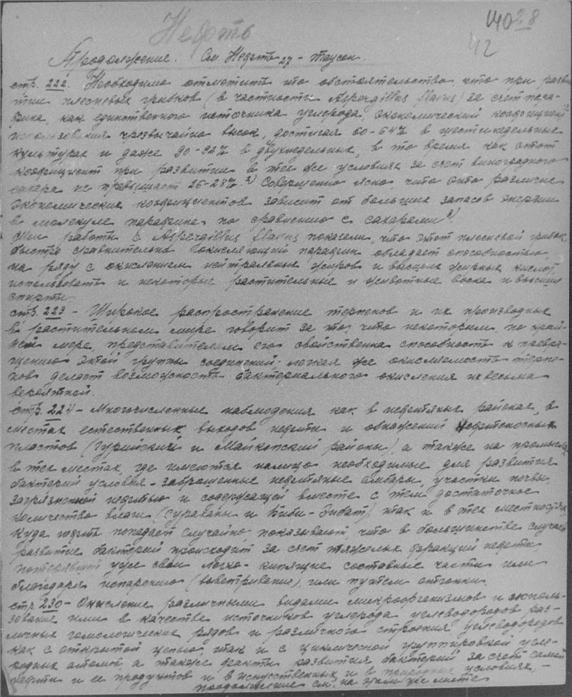 Нефть
Продолжение. См. Нефть 27 - Таусон.
стр. 222. Необходимо отметить то обстоятельство, что при разви
тии плесневых грибков (в частности Aspergillus flavus) за счет пара-
фина, как единственного источника углерода, экономический коэфициент
использования чрезвычайно высок, достигая 60-64% в шестинедельных
культурах и даже 90-92% в двухнедельных, в то время как этот
коэфициент при развитии в тех же условиях за счет виноградного
сахара не превышает 25-27%. Совершенно ясно что это различие
экономических коэфициентов зависит от больших запасов энергии
в молекуле парафина по сравнению с сахарами
работы с Aspergillus flavus показали, что этот плесневой грибок
быстро сравнительно окисляющий парафин обладает способностью
на ряду с окислением нейтральных жиров и высших жирных кислот
использовать и некоторые растительные и животные воска и высшие
спирты.
стр. 223 - Широкое распространение терпенов и их производных
в растительном мире говорит за то, что некоторым по край-
ней мере представителям его свойственна способность к превра-
щению этой группы соединений. Легкая же окисляемость терпе-
нов делает возможность бактериального окисления их весьма
вероятной.
стр. 224 - Многочисленные наблюдения как в нефтяных районах, в
местах естественных выходов нефти и обнажений нефтеносных
пластов (Гурийский и Майкопский районы), а также на промыслах
в тех местах, где имеются налицо необходимые для развития
бактерий условия - заброшенные нефтяные амбары, участки почвы
загрязненной нефтью и содержащей вместе с тем достаточное
количество влаги (Сураханы и Биби-Эйбат) так и в тех местностях
куда нефть попадает случайно, показывают что в большинстве случаев
развитие бактерий происходит за счет тяжелых фракций нефти
потерявшей уже свои легко-кипящие составные части или
благодаря испарению (выветриванию), или путем отгонки.
стр. 230 - Окисление различными видами микроорганизмов и исполь-
зование ими в качестве источников углерода углеводородов раз-
личных гомологических рядов и различного строения углеводородов
как с открытой цепью, так и с циклической группировкой угле-
родных атомов, а также факты развития бактерий за счет самой
нефти и ее продуктов и в искусственных и в природных условиях, -
продолжение см. на этом же листе